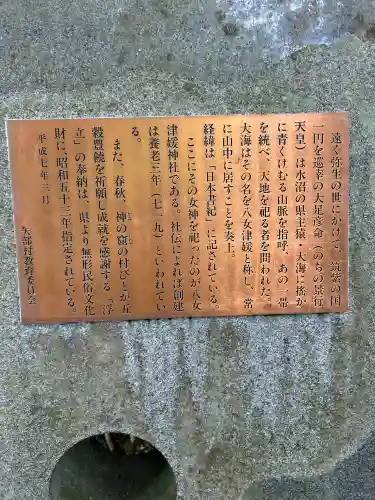 遠く弥生の世にかけ、筑紫の国
一円を巡幸の大足彦命（のちの景行
天皇）は水沼の県主猿・大海に遙か
に青くけむる山脈を指呼、あの一帯
を統べ、天地を祀る者を問われた。
大海はその名を八女津媛と称し、常
に山中に居すことを奏上。
経緯は「日本書紀」に記されている。
ここにその女神を祀ったのが八女
津媛神社である。社伝によれば創建
は養老三年（七一九）といわれてい
る。
また、春秋、神の窟の村びとが五
穀豊饒を祈願し成就を感謝する「浮
立」の奉納は、県より無形民俗文化
財に、昭和五十三年指定されている。
平成七年三月
矢部村教育委員会